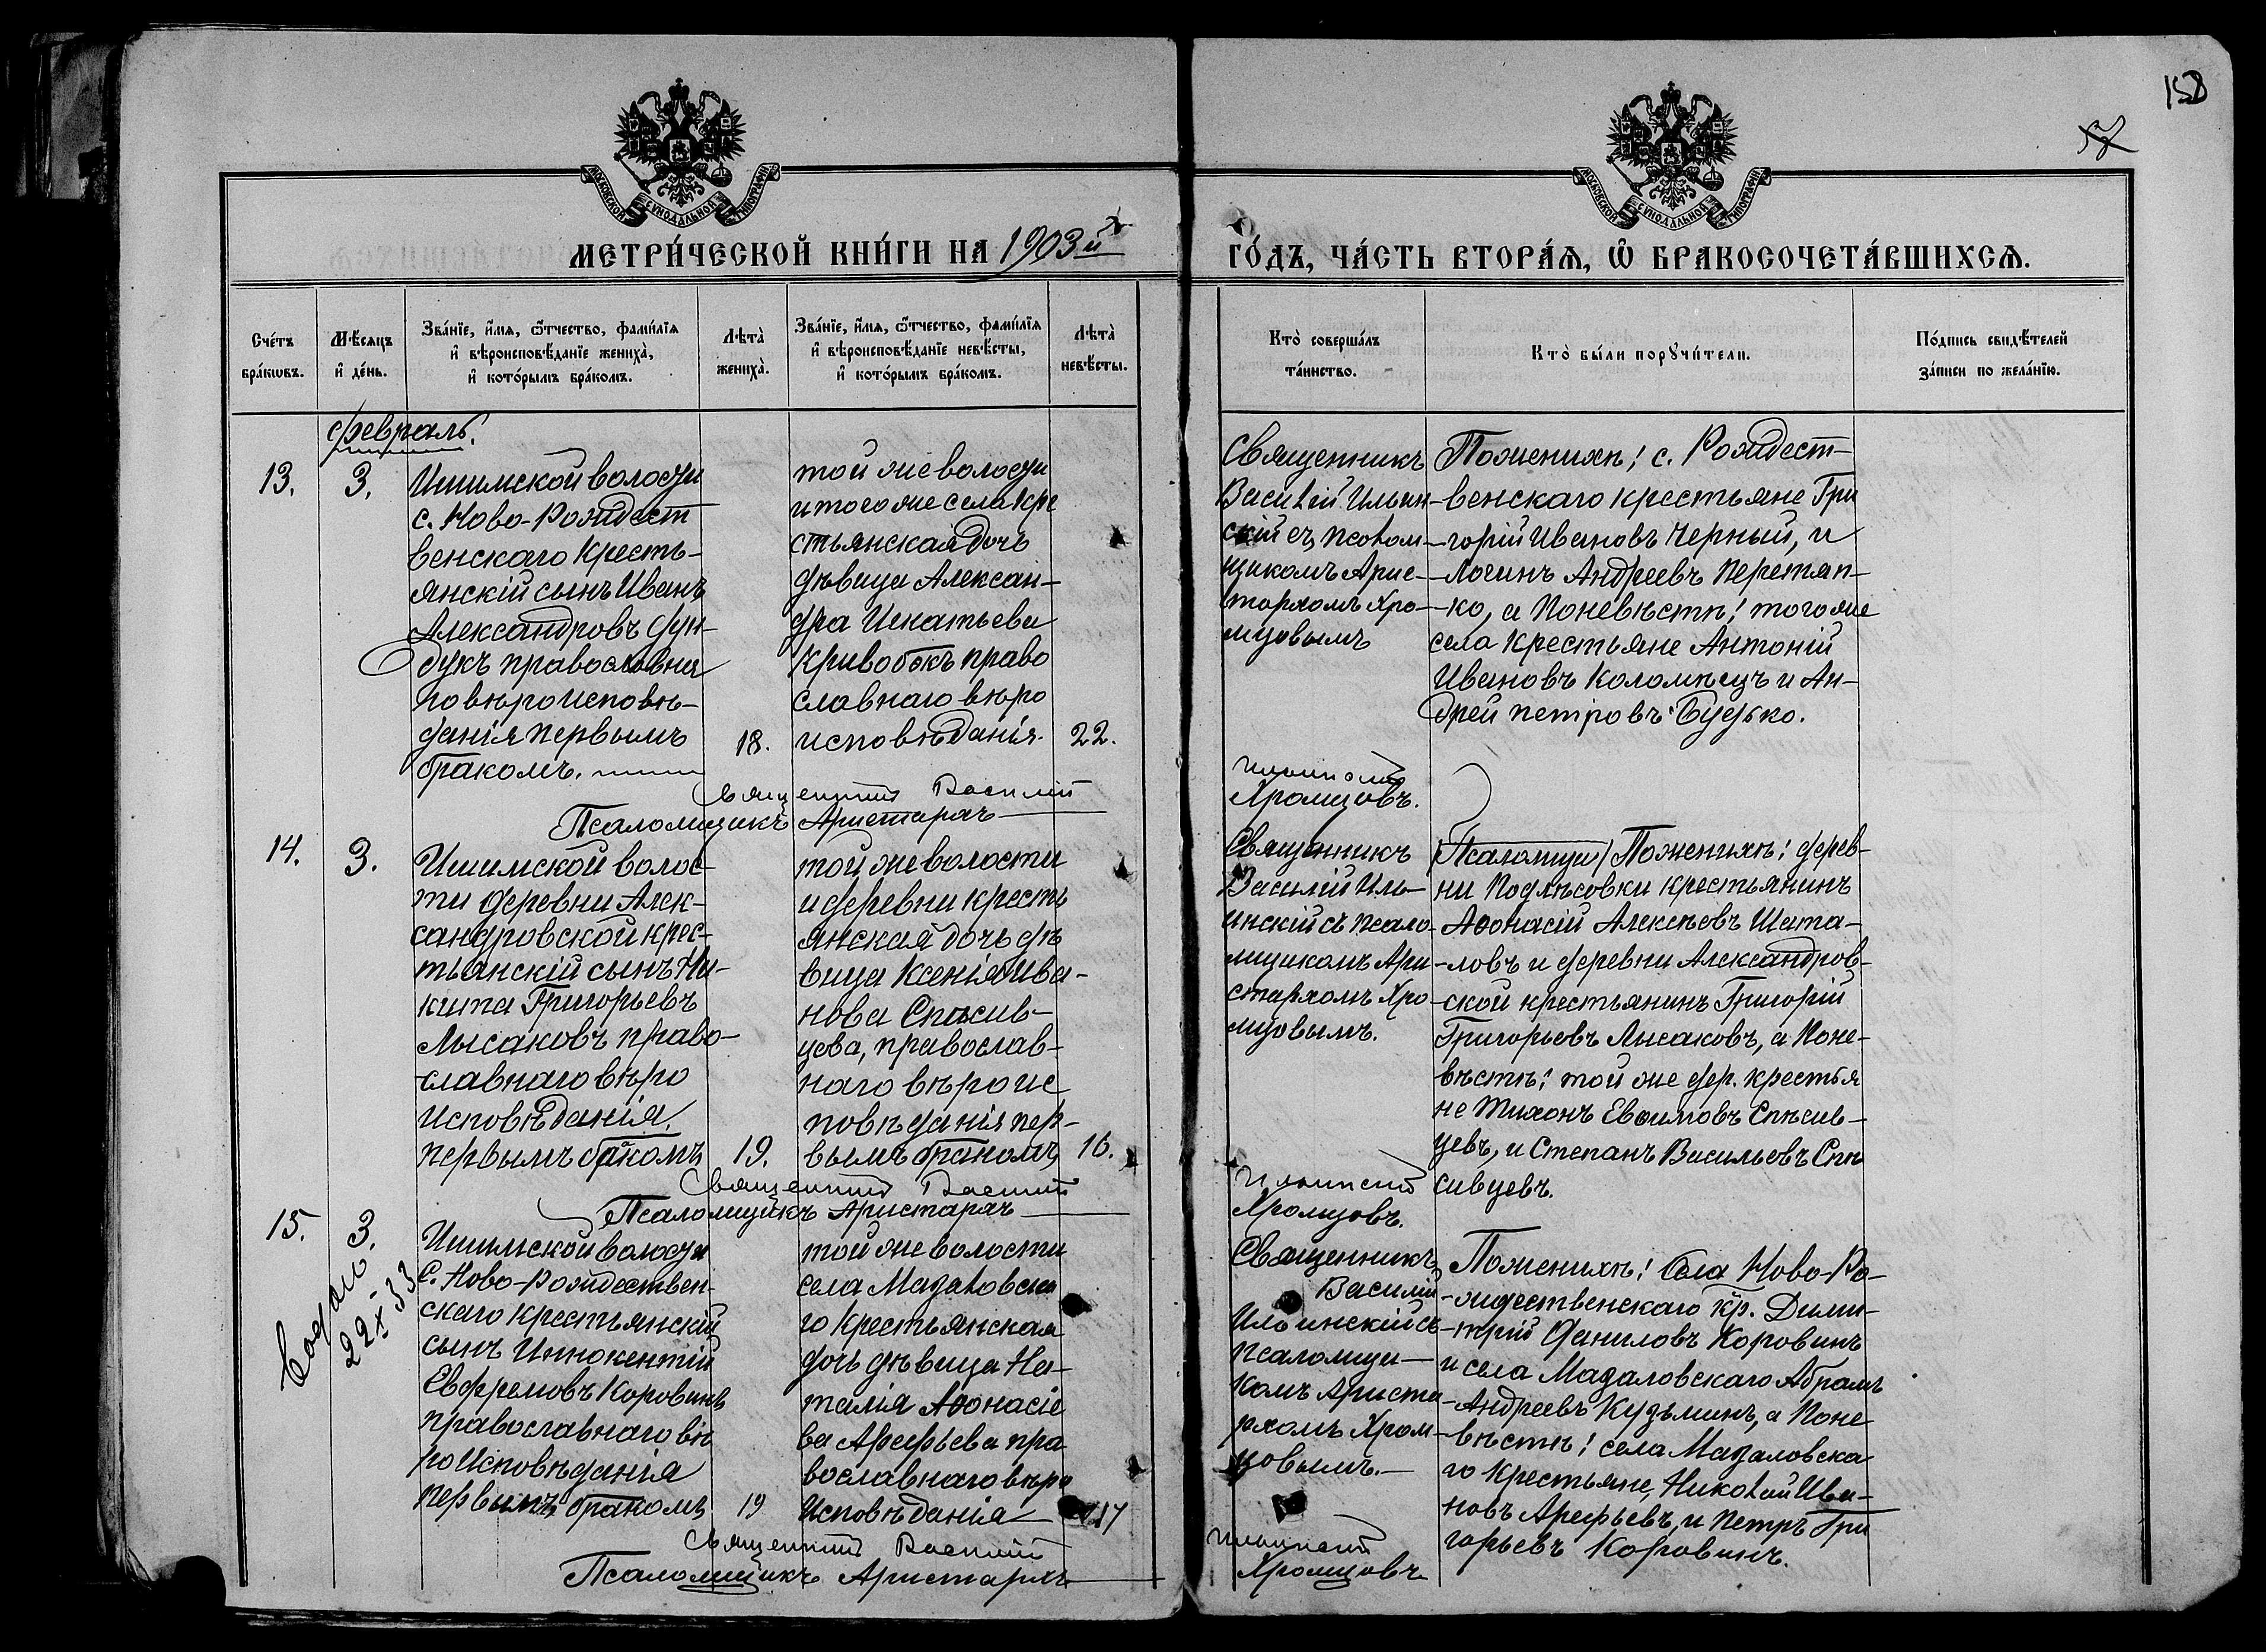 158
57
МОСКОВСКОЙ СУНОДАЛЬНОЙ ТИПОГРАФІИ
МОСКОВСКОЙ СУНОДАЛЬНОЙ ТИПОГРАФІИ
МЕТРИ́ЧЕСКОЙ КНИ́ГИ НА 1903й
ГО́ДЪ, ЧА́СТЬ ВТОРА́Я, Ѿ БРАКОСОЧЕТА́ВШИХСЯ.
Сче́тъ
бра́кѡвъ.
Мѣ́сяцъ
и҆ де́нь.
Зва́нїе, и҆́мя, ѻ҆́тчество, фами́лїя
и҆ вѣроисповѣ́данїе жениха̀,
и҆ кото́рымъ бра́комъ.
Лѣ́та
жениха̀.
Зва́нїе, и҆́мя, ѻ҆́тчество, фами́лїя
и҆ вѣроисповѣ́данїе невѣ́сты,
и҆ кото́рымъ бра́комъ.
Лѣ́та
невѣ́сты.
Кто̀ соверша́лъ
та́инство.
Кто̀ бы́ли порꙋчи́тели.
По́дпись свидѣ́телей
за́писи по жела́нїю.
Февраль.
13.
3.
Ишимской волости
с. Ново-Рождест
венскаго кресть-
янскій сынъ Иванъ
Александровъ Фун-
дукъ православна
го вѣроисповѣ-
данія первымъ
бракомъ.
18.
той же волости
и того же села кре
стьянская дочь
дѣвица Алексан-
дра Игнатьева
Кривобокъ право
славнаго вѣро
исповѣданія.
22.
Священникъ
Василій Ильин-
скій съ псалом-
щикомъ Арис-
тархомъ Хро-
мцовымъ
По женихѣ: с. Рождест-
венскаго крестьяне Гри
горій Ивановъ Черный, и
Логинъ Андреевъ Перетят-
ко, а по невѣстѣ: того же
села крестьяне Антоній
Ивановъ Коломѣецъ и Ан-
дрей Петровъ Будько.
Священникъ Василій Ильинскій
Псаломщикъ Аристархъ Хромцовъ.
14.
3.
Ишимской волос-
ти деревни Алек-
сандровской крес-
тьянскій сынъ Ни-
кита Григорьевъ
Лысаковъ право-
славнаго вѣро
исповѣданія,
первымъ бракомъ
19.
той же волости
и деревни кресть
янская дочь дѣ
вица Ксенія Ива-
нова Спѣсив-
цева, православ-
наго вѣроис
повѣданія пер-
вымъ бракомъ
16.
Священникъ
Василій Иль-
инскій съ псало-
мщикомъ Ари-
стархомъ Хро-
мцовымъ.
Псаломщи По женихѣ: дерев-
ни Подлѣсовки крестьянинъ
Аѳонасій Алексѣевъ Шата-
ловъ и деревни Александров-
ской крестьянинъ Григорій
Григорьевъ Лысаковъ, а по не-
вѣстѣ: той же дер. крестья
не Тихонъ Евѳимовъ Спѣсив-
цевъ, и Степанъ Васильевъ Спѣ
сивцевъ.
Священникъ Василій Ильинскій
Псаломщикъ Аристархъ Хромцовъ.
15.
3.
22-X 33
Ишимской волости
с. Ново-Рождествен-
скаго крестьянскій
сынъ Иннокентій
Евфремовъ Коровинъ
православнаго вѣ
роисповѣданія
первымъ бракомъ
19
той же волости
села Мазаловска
го крестьянская
дочь дѣвица На-
талія Аѳонасіе
ва Арефьева пра
вославнаго вѣро
исповѣданія
17
Священникъ
Василій
Ильинскій съ
псаломщи-
комъ Ариста
рхомъ Хром-
цовымъ.
По женихѣ: села Ново-Ро-
ждественскаго кр. Дими-
трій Даниловъ Коровинъ
и села Мазаловскаго Абрамъ
Андреевъ Кузьминъ, а по не
вѣстѣ: села Мазаловска
го крестьяне, Николай Ива-
новъ Арефьевъ, и Петръ Гри
горьевъ Коровинъ.
Священникъ Василій Ильинскій
Псаломщикъ Аристархъ Хромцовъ